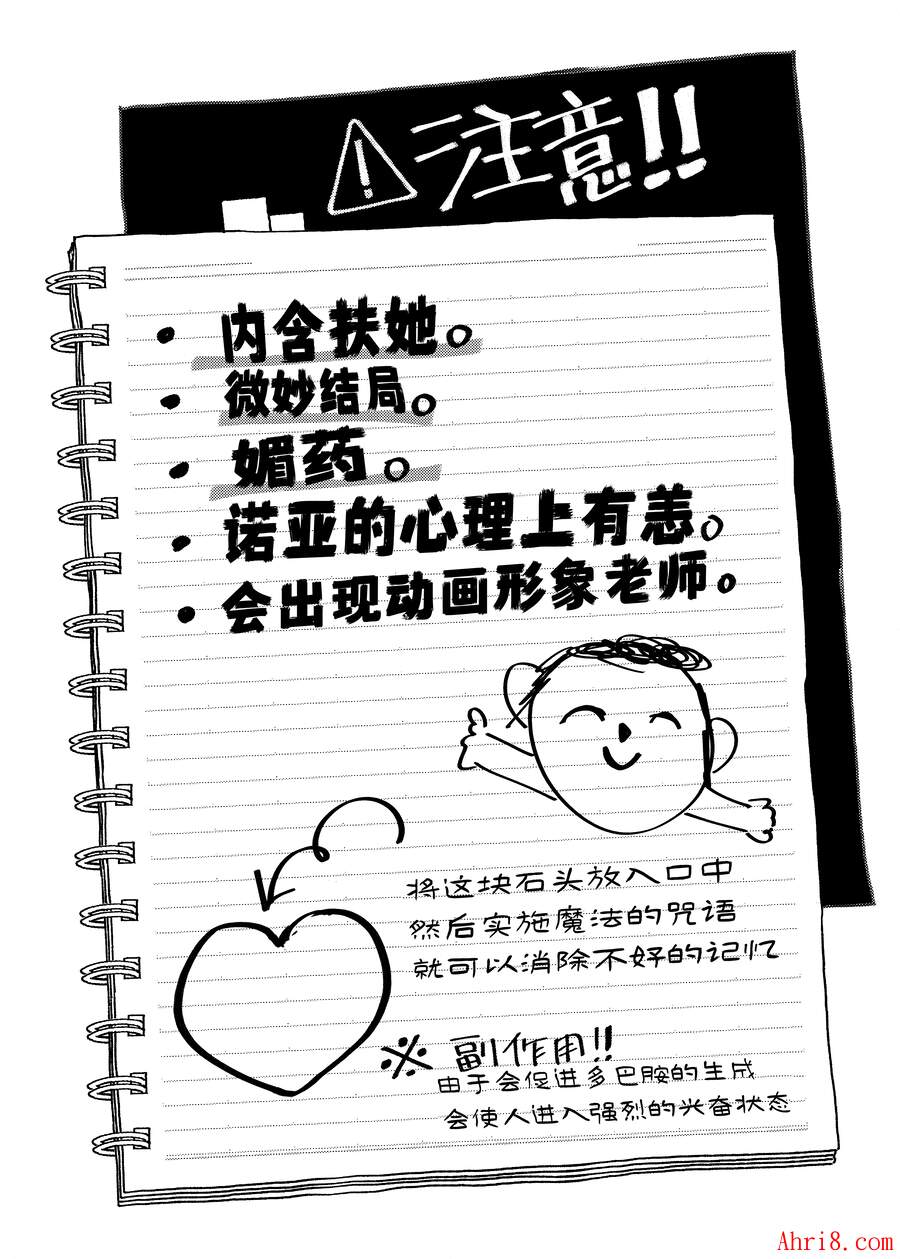 注意!!
・内含扶她。
・微妙结局。
・媚药。
・诺亚的心理上有恙。
・会出现动画形象老师。
将这块石头放入口中
然后实施魔法的咒语
就可以消除不好的记忆
※ 副作用!!
由于会促进多巴胺的生成
会使人进入强烈的兴奋状态
Ahri8.com